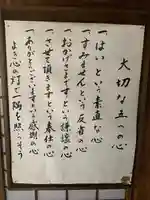 大切な五つの心
一、はいという素直な心
一、すみませんという反省の心
一、おかげさまでですという謙虚な心
一、させて頂きますという奉仕の心
一、ありがとうございますという感謝の心
よき心の灯で一隅を照らそう